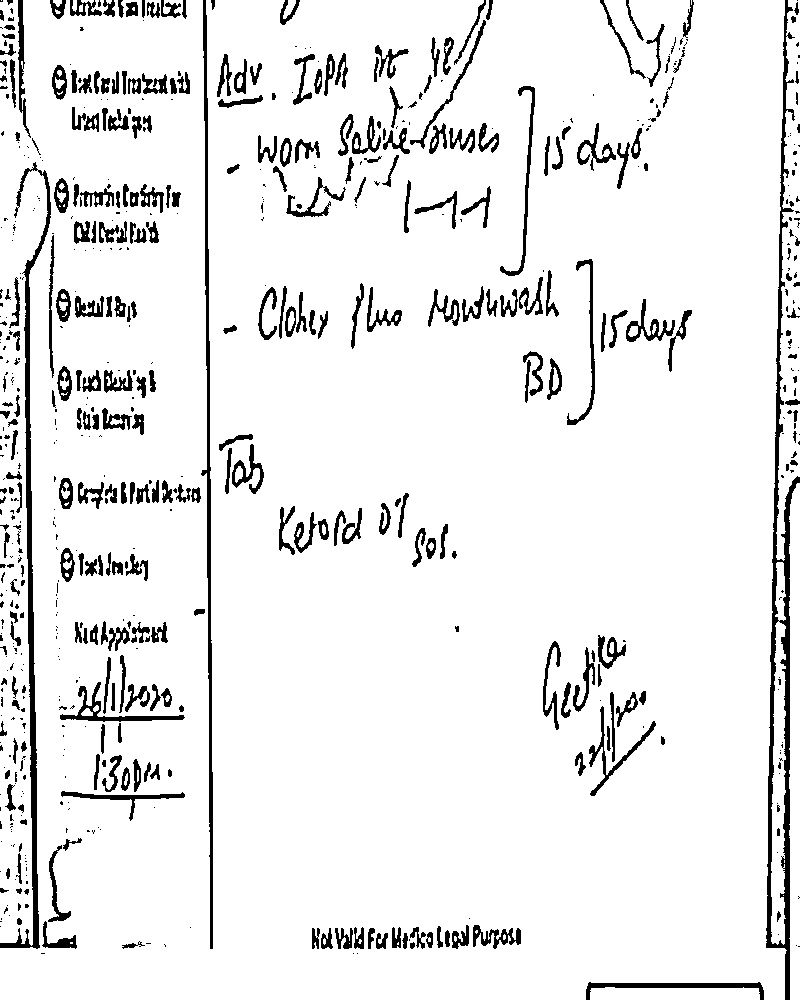 Root Canal Treatment with
Latest Techniques
Preventive Dentistry For
Child Dental Health
Dental X-Rays
Teeth Bleaching &
Stain Removing
Complete & Partial Dentures
Tooth Jewellery
Next Appointment
26/1/2020.
1:30PM.
Adv. IOPA
- Warm Saline rinses
1-1-1
15 days.
- Clohex Plus Mouthwash
BD
15 days
Tab
Ketorol DT
SOS.
Geetika
22/1/20
Not Valid For Medico Legal Purpose